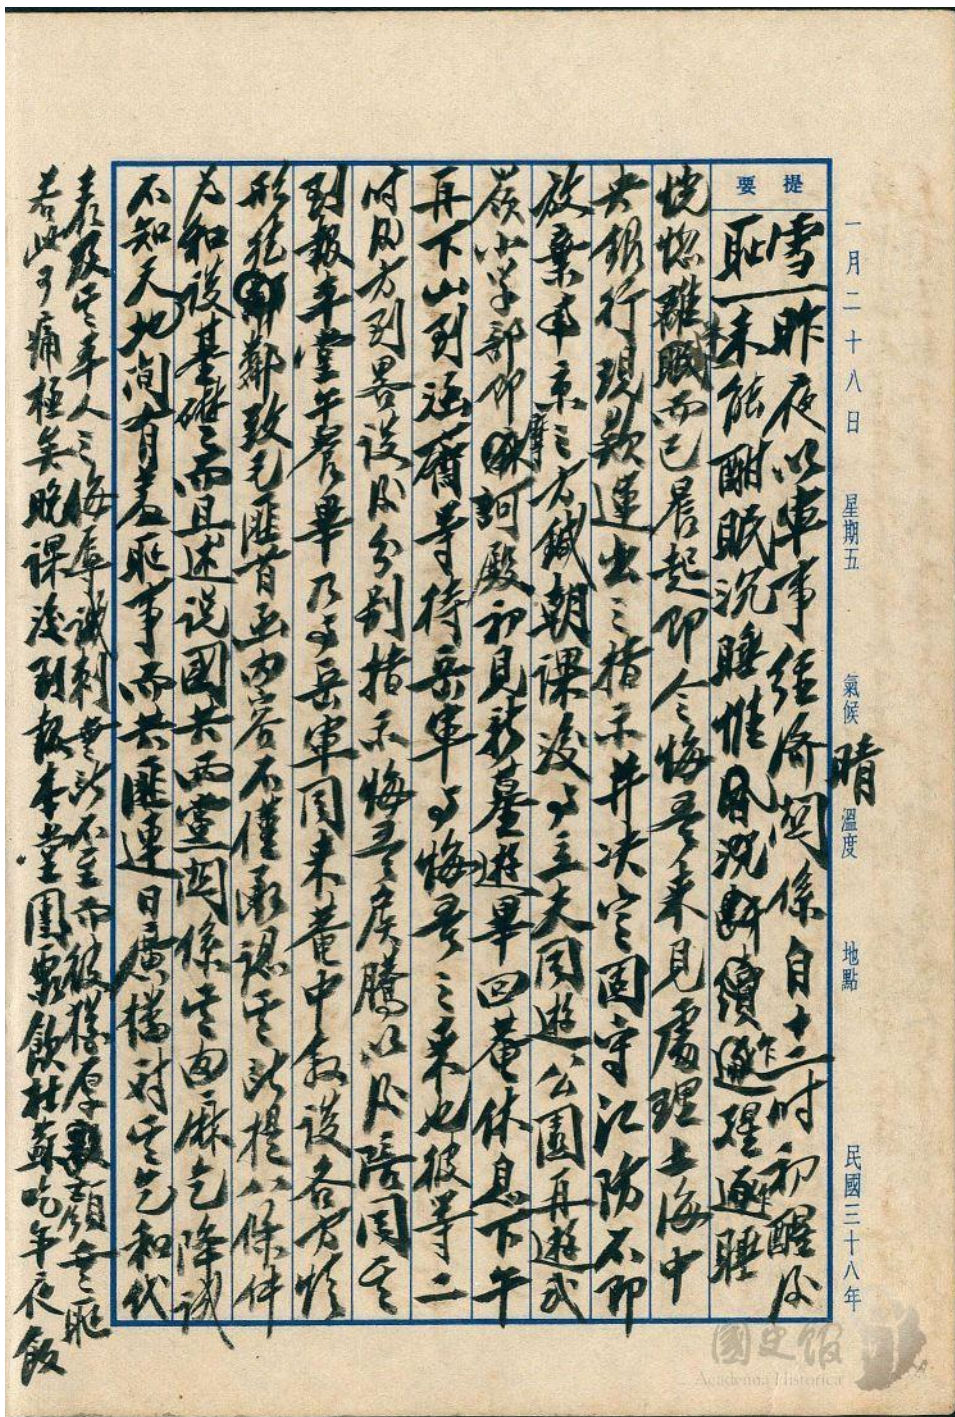 民國三十八年
一月二十八日 星期五 氣候 晴 溫度 地點
提要
雪一昨夜以軍事經濟關係自十二時初醒後
恥一未能酣眠沉睡惟昏沉斷續乍醒乍睡
恍惚雖眠而已晨起即令悔吾來見處理上海中
央銀行現款運出之指示并決定固守江防不即
放棄南京之方鍼朝課後與立夫同遊公園再遊武
嶺小學部即摩訶殿初見新墓遊畢回菴休息下午
再下山到涵齋等待岳軍與悔吾之來也彼等二
時月方到畧談後分別指示悔吾矦騰以後陪同其
到報本堂午膳畢乃與岳軍同來菴中敘談各方情
形彼邵致毛匪首函內容不僅承認其所提八條件
為和談基礎而且述說國共兩黨關係其函麻乞降誠
不知天地間有羞恥事而共匪連日廣播對其乞和代
表及其本人之侮辱譏刺無所不至而彼等厚顏無恥
若此可痛極矣晚課後到報本堂團聚飲杜蘇吃年夜飯
國史館
Academia Historica